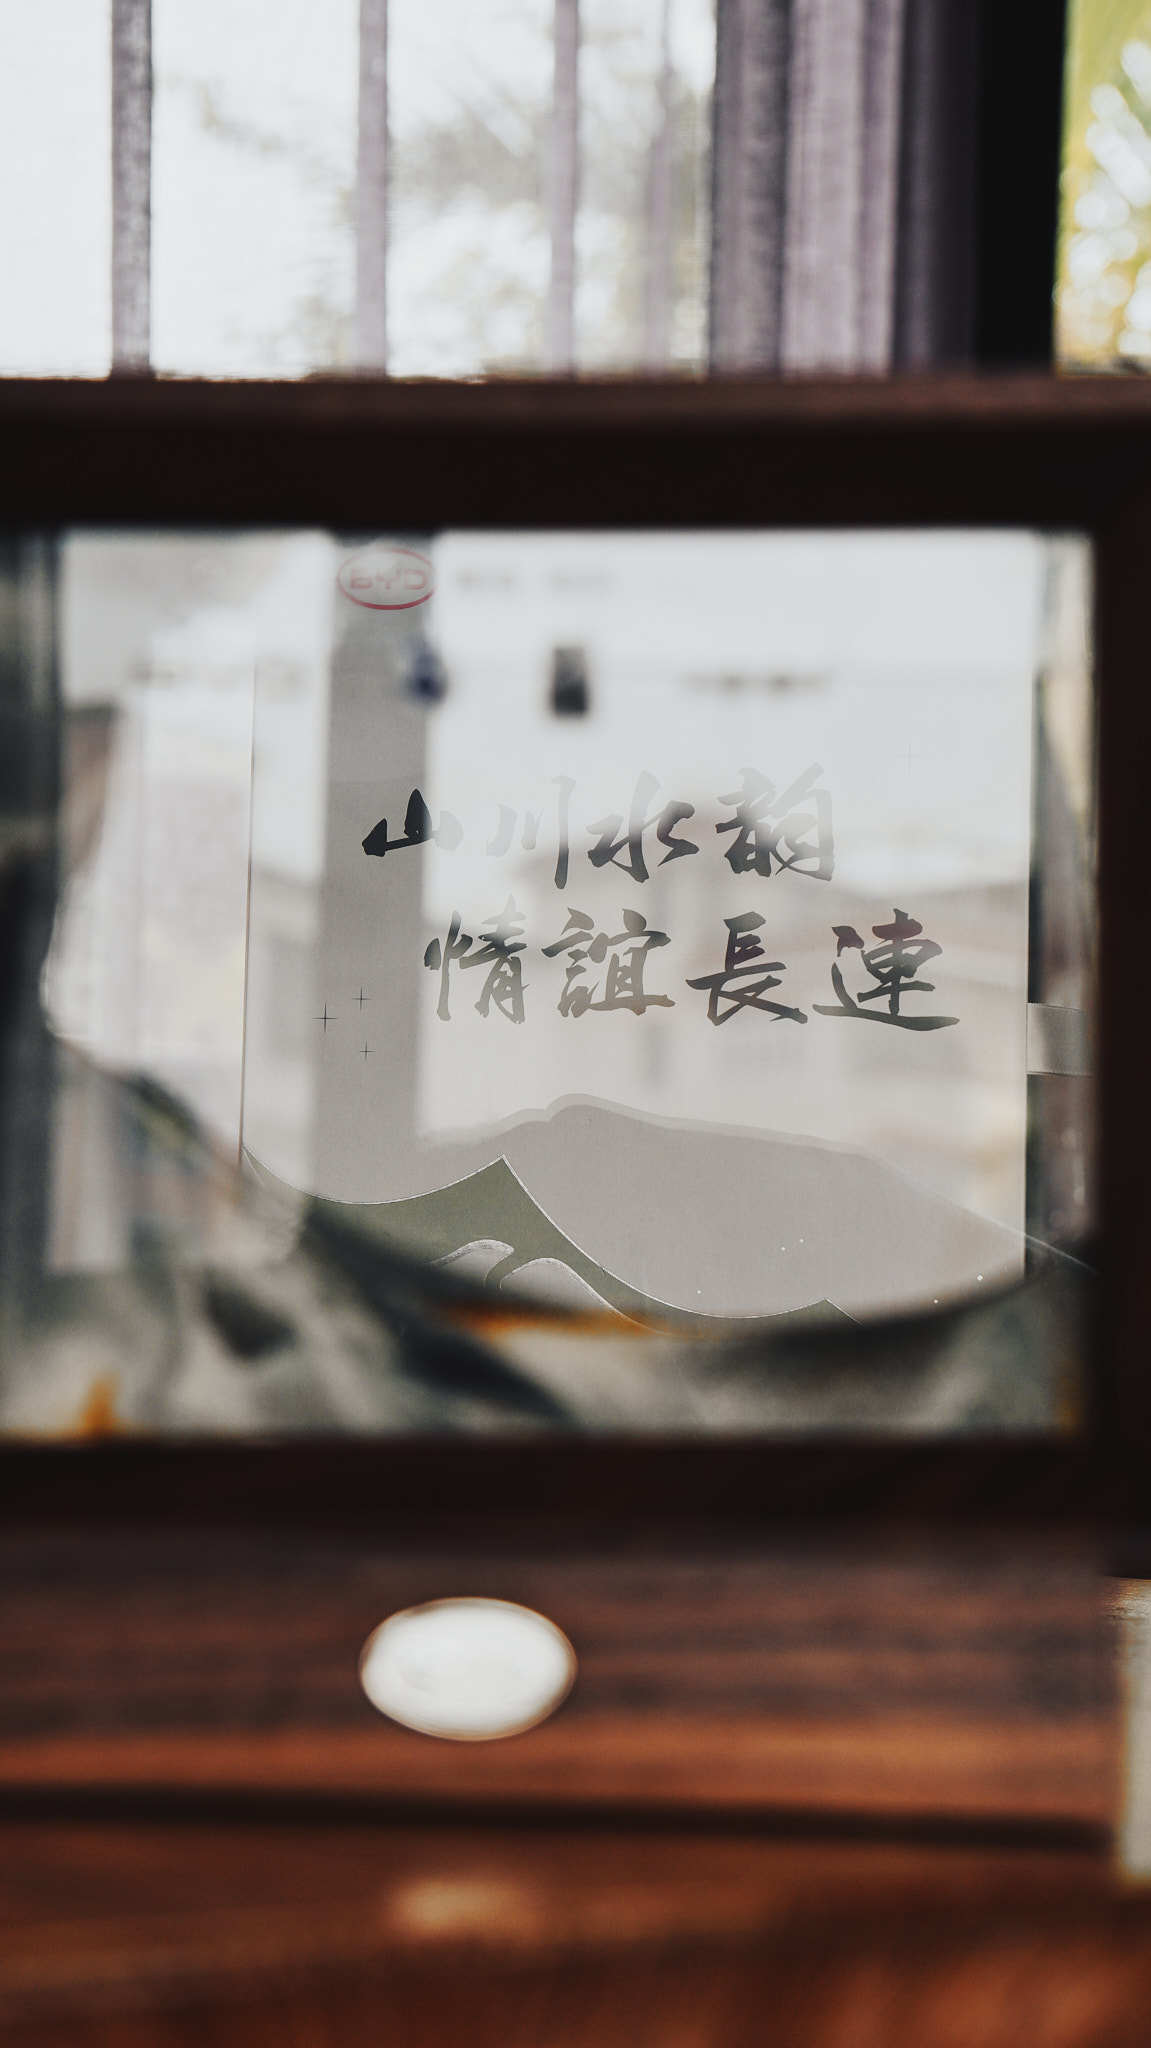 BYD
山川水韵
情誼長連